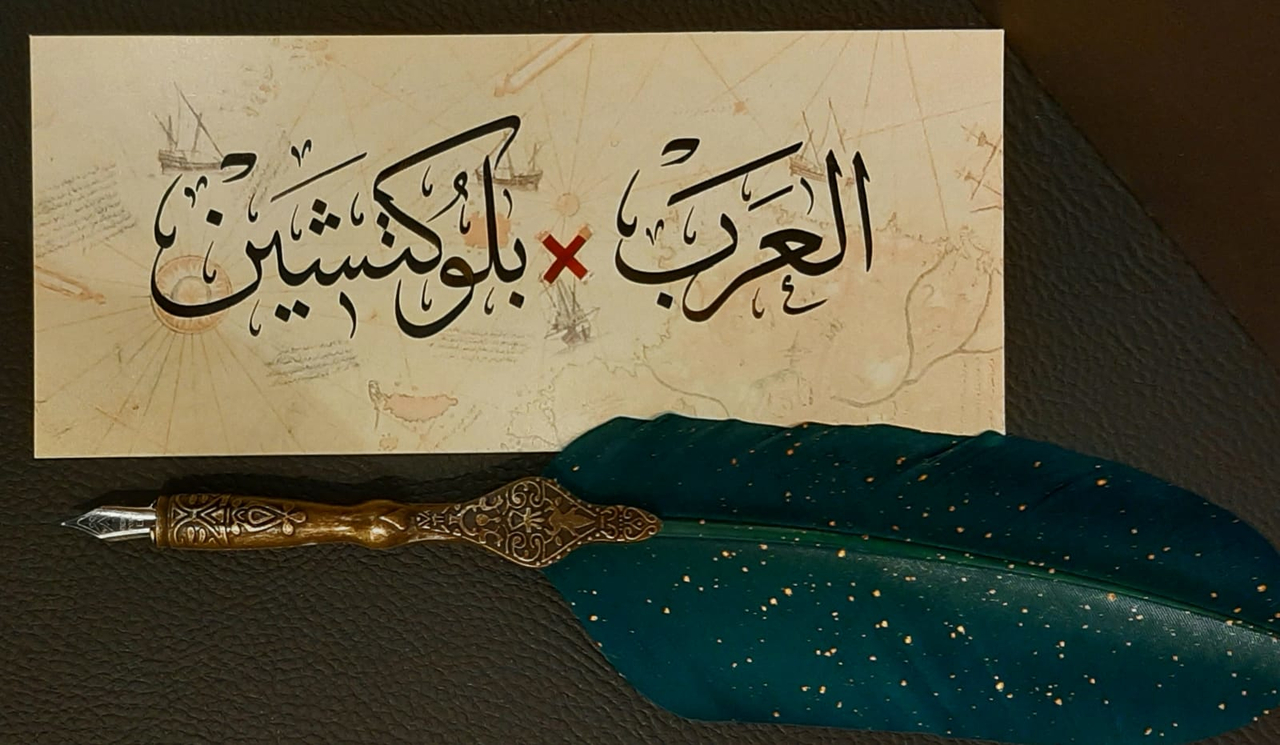 العَرَبْ × بلُوكتشَينْ